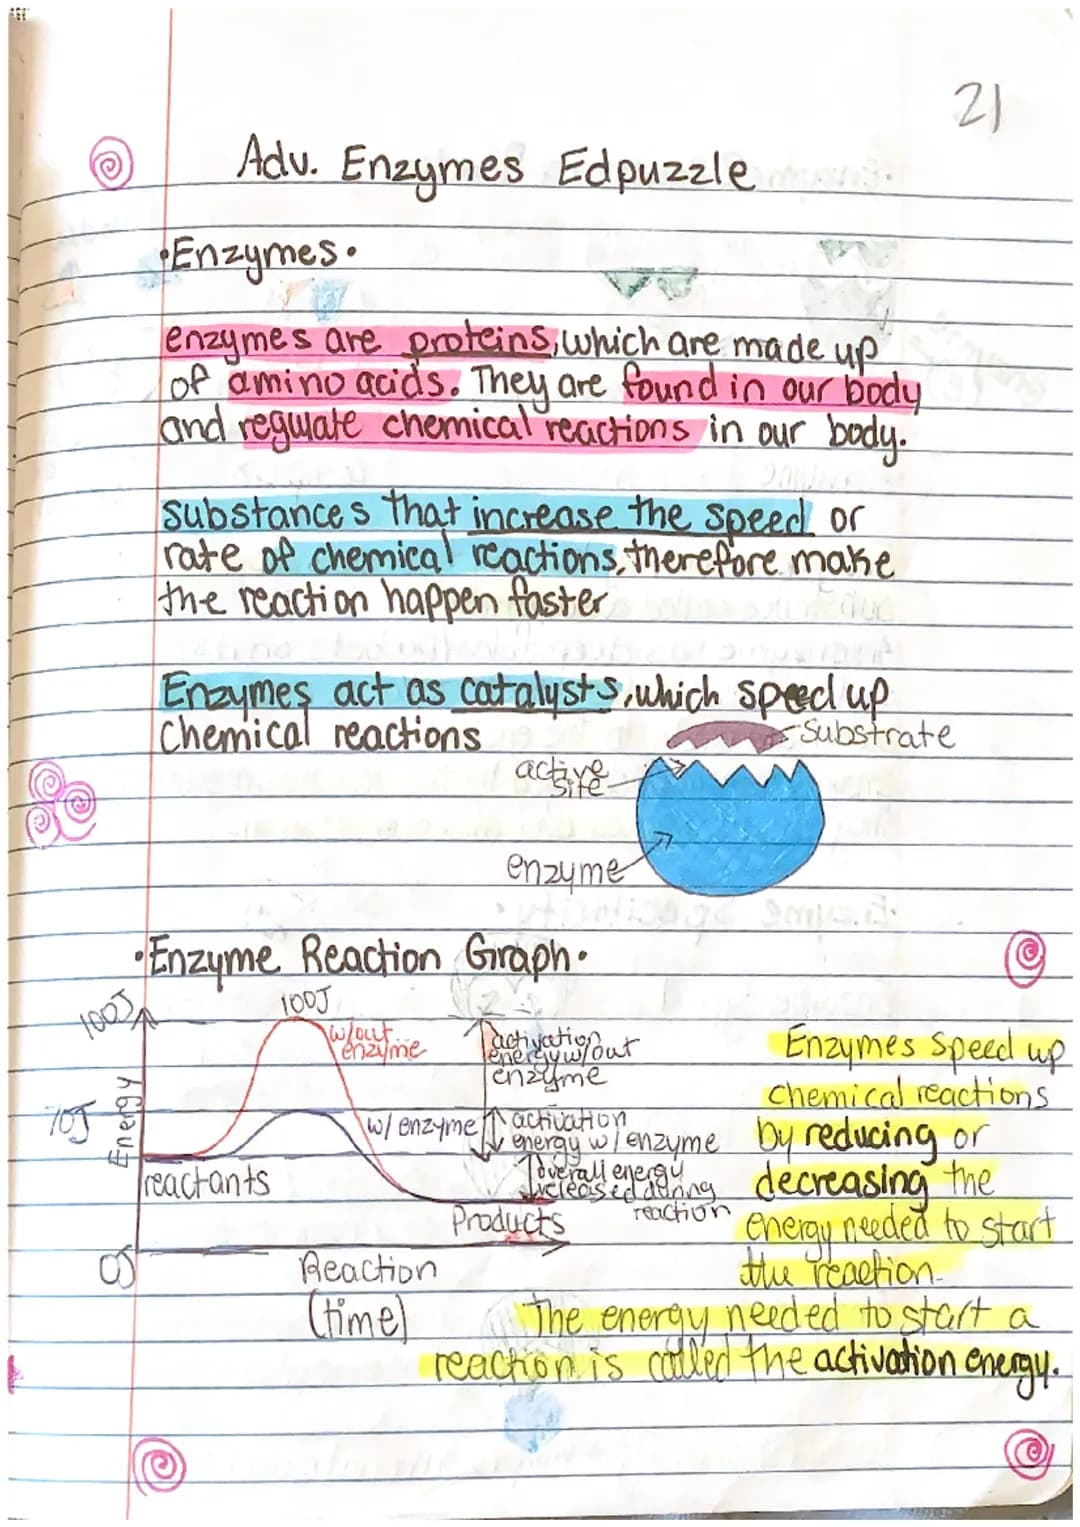 21
Adv. Enzymes Edpuzzle
•Enzymes•
enzymes are proteins, which are made up
of amino acids. They are found in our body
and regulate chemical reactions in our body.
substances that increase the speed or
rate of chemical reactions, therefore make
the reaction happen faster
Enzymes act as catalysts, which speed up
chemical reactions
substrate
active
site
enzyme
•Enzyme Reaction Graph•
100J
100J
w/out
enzyme
activation
energy w/out
enzyme
Energy
70J
w/ enzyme
activation
energy w/ enzyme
reactants
overall energy
released during
reaction
Products
0J
Reaction
(time)
Enzymes speed up
chemical reactions
by reducing or
decreasing the
energy needed to start
the reaction.
The energy needed to start a
reaction is called the activation energy.